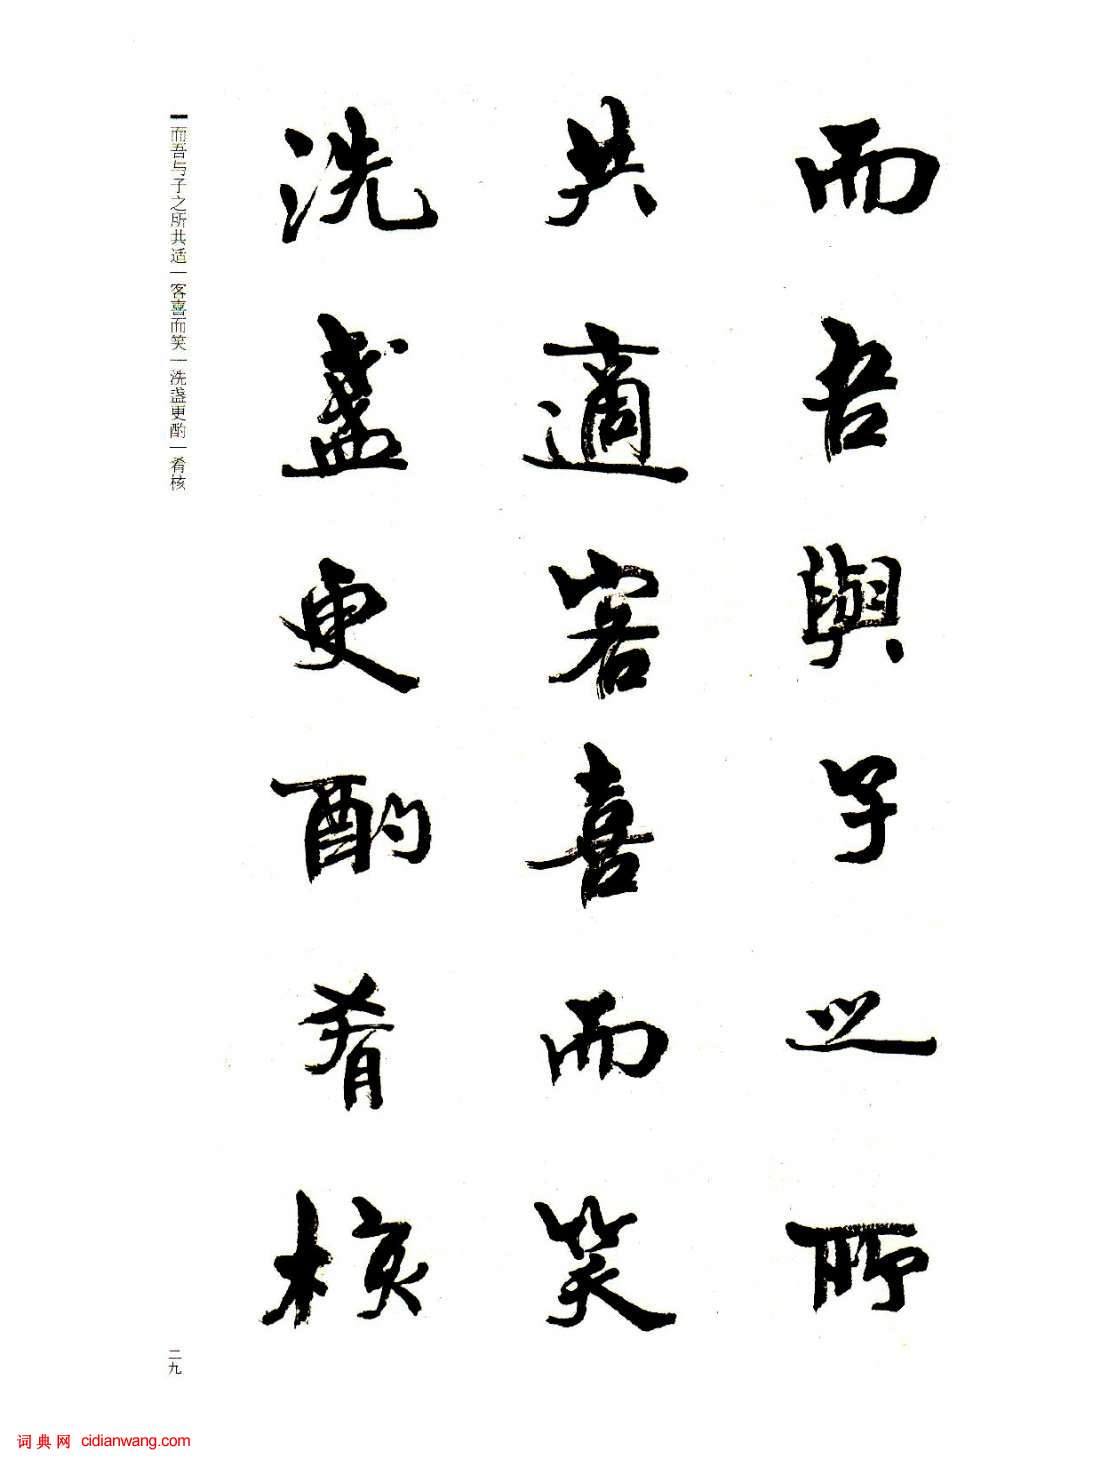 而吾與子之所
共適客喜而笑
洗盞更酌肴核
而吾与子之所共适｜客喜而笑｜洗盏更酌｜肴核
二九
词典网 cidianwang.com